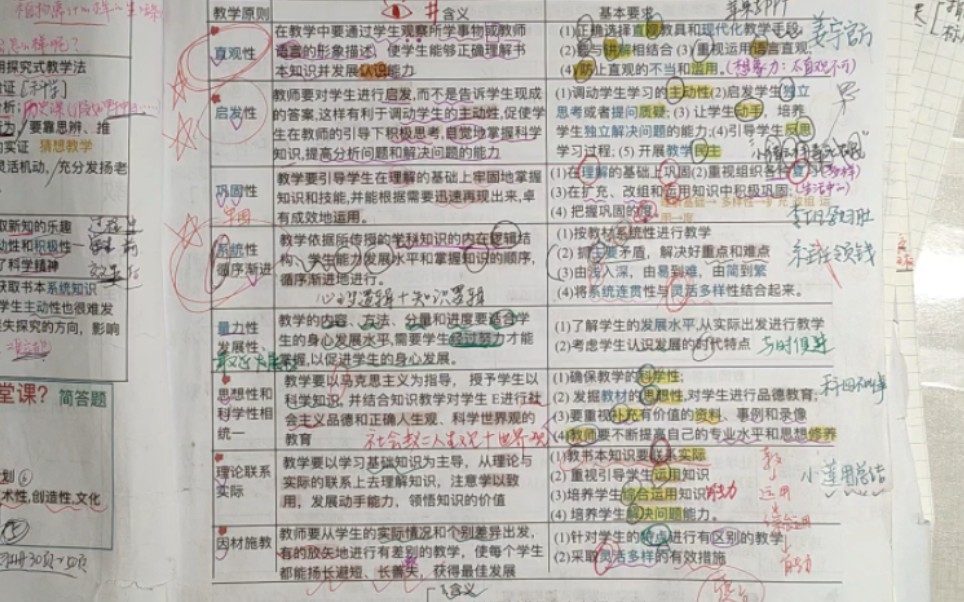 用探究式教学法
要靠思辨、推
的实证 猜想教学
灵活机动，充分发扬老
取新知的乐趣
动性和积极性
了科学精神
获取书本系统知识
学生主动性也很难发
迷失探究的方向，影响
堂课? 简答题
术性,创造性,文化
教学原则 含义 基本要求
直观性
在教学中要通过学生观察所学事物或教师
语言的形象描述，使学生能够正确理解书
本知识并发展认识能力
(1)正确选择直观教具和现代化教学手段
(2)要与讲解相结合 (3)重视运用语言直观
(4)防止直观的不当和滥用。
启发性
教师要对学生进行启发,而不是告诉学生现成
的答案,这样有利于调动学生的主动性,促使学
生在教师的引导下积极思考,自觉地掌握科学
知识,提高分析问题和解决问题的能力
(1)调动学生学习的主动性(2)启发学生独立
思考或者提问质疑; (3) 让学生动手，培养
学生独立解决问题的能力;(4)引导学生反思
学习过程; (5) 开展教学民主
巩固性
教学要引导学生在理解的基础上牢固地掌握
知识和技能,并能根据需要迅速再现出来，卓
有成效地运用。
(1)在理解的基础上巩固(2)重视组织各种复习
(3)在扩充、改组和运用知识中积极巩固;
(4) 把握巩固的度
系统性
循序渐进
教学依据所传授的学科知识的内在逻辑结
构、学生能力发展水平和掌握知识的顺序，
循序渐进地进行。
(1)按教材系统性进行教学
(2) 抓主要矛盾，解决好重点和难点
(3)由浅入深，由易到难，由简到繁
(4)将系统连贯性与灵活多样性结合起来。
心理逻辑+知识逻辑
量力性
发展性、
教学的内容、方法、分量和进度要适合学
生的身心发展水平,需要学生经过努力才能
掌握,以促进学生的身心发展。
(1)了解学生的发展水平,从实际出发进行教学
(2)考虑学生认识发展的时代特点 与时俱进
思想性和
科学性相
统一
教学要以马克思主义为指导， 授予学生以
科学知识，并结合知识教学对学生 E进行社
会主义品德和正确人生观、科学世界观的
教育
(1)确保教学的科学性;
(2) 发掘教材的思想性,对学生进行品德教育;
(3)要重视补充有价值的资料、事例和录像
(4)教师要不断提高自己的专业水平和思想修养
理论联系
实际
教学要以学习基础知识为主导，从理论与
实际的联系上去理解知识，注意学以致
用，发展动手能力，领悟知识的价值
(1)教书本知识要联系实际
(2)重视引导学生运用知识
(3)培养学生综合运用知识能力
(4) 培养学生解决问题能力。
因材施教
教师要从学生的实际情况和个别差异出发，
有的放矢地进行有差别的教学，使每个学生
都能扬长避短、长善救失，获得最佳发展
(1)针对学生的特点进行有区别的教学
(2)采取灵活多样的有效措施
含义